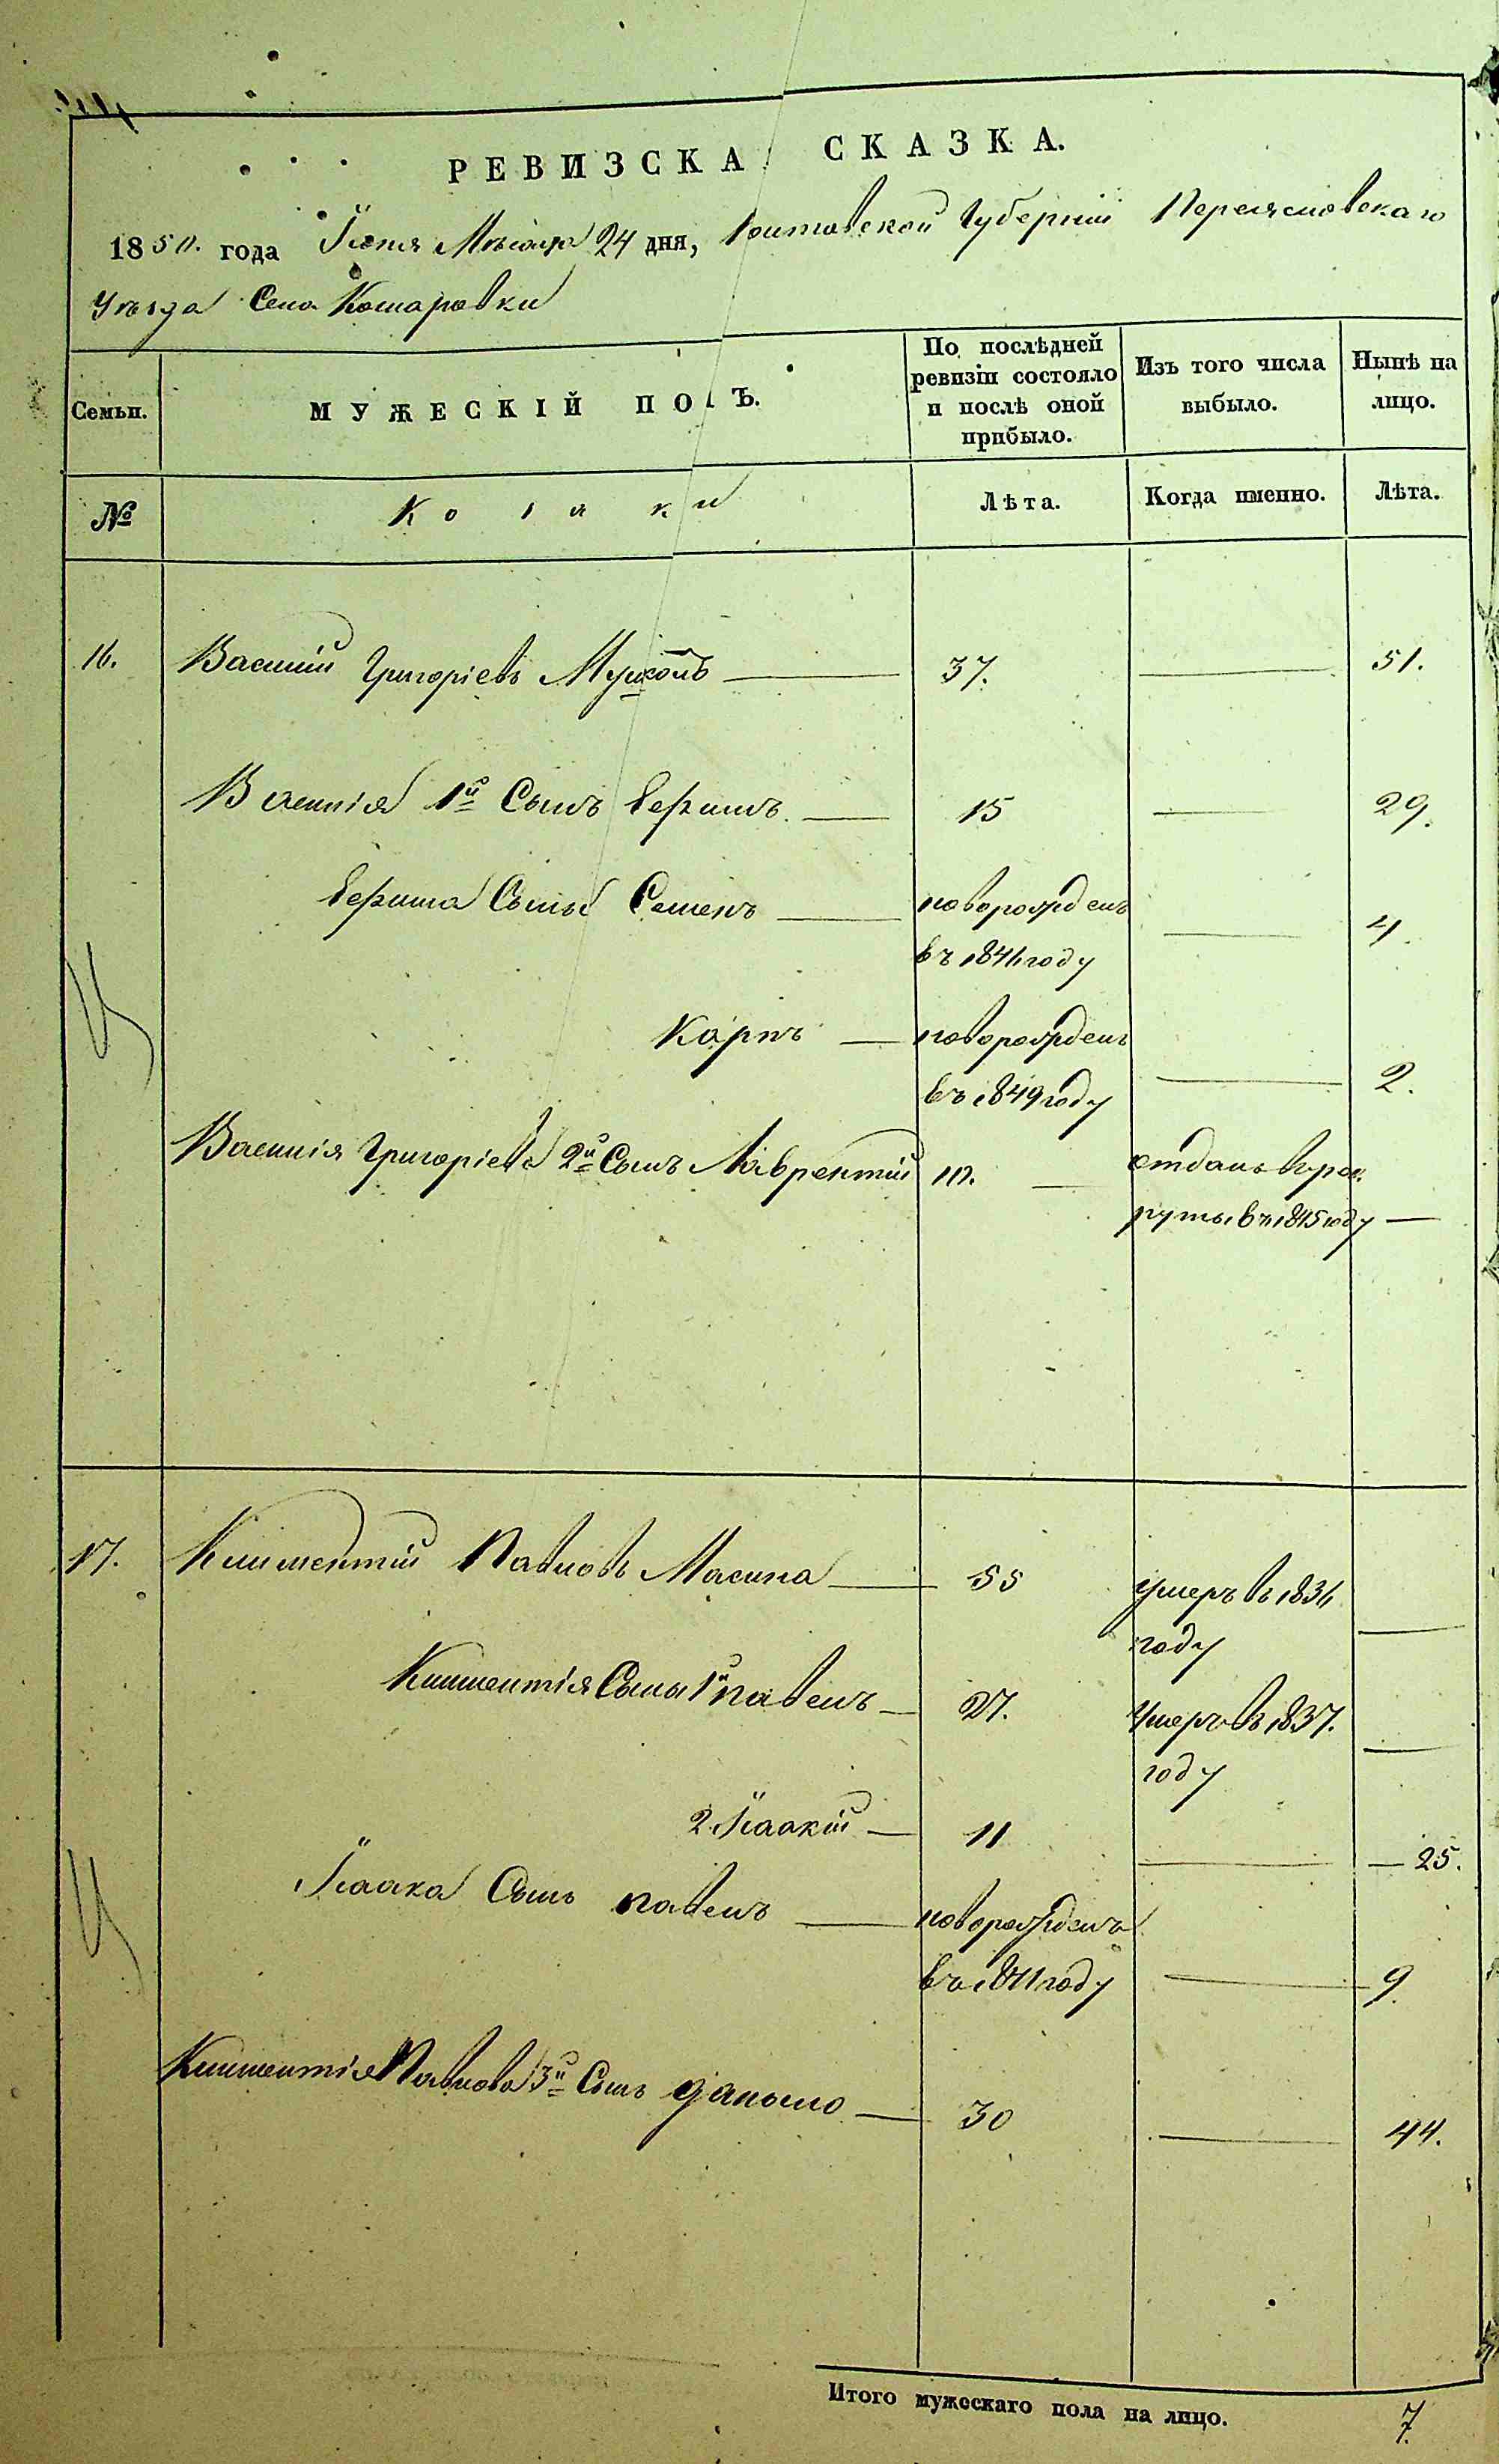 РЕВИЗСКА СКАЗКА.
1850. года Іюня Мѣсяца 24 дня, Полтавской Губерніи Переяславскаго
Уѣзда Села Комаровки
Семьи.
МУЖЕСКІЙ ПОЛЪ.
По послѣдней ревизіи состояло и послѣ оной прибыло.
Изъ того числа выбыло.
Нынѣ на лицо.
№
Козаки
Лѣта.
Когда именно.
Лѣта.
16. Василій Григорієвъ — 37. — 51.
Василія 1й Сынъ Ефимъ. — 15 — 29.
Ефима Сыны Семенъ — новорожденъ
въ 1846 году — 4.
Карпъ — новорожденъ
въ 1849 году — 2.
Василія Григоріева 2й Сынъ Лаврентій 10. — отданъ в рек
руты въ 1845 году —
17. Климентій Павловъ Масина — 55 умеръ въ 1836
году —
Климентія Сыны 1й Павелъ — 27. умеръ въ 1837.
году —
2. Ісаакій — 11 — 25.
Ісаака Сынъ Павелъ — новорожденъ
въ 1841 году — 9
Климентія Павлова 3й Сынъ Данило — 30 — 44.
Итого мужескаго пола на лицо. 7.